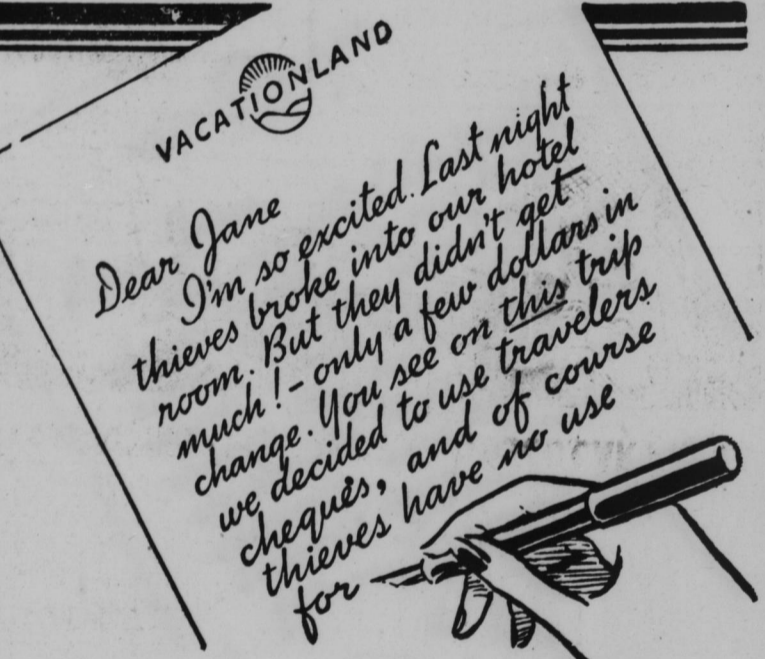 VACATIONLAND
Dear Jane
I'm so excited. Last night
thieves broke into our hotel
room. But they didn't get
much! - only a few dollars in
change. You see on this trip
we decided to use travelers
cheques, and of course
thieves have no use
for